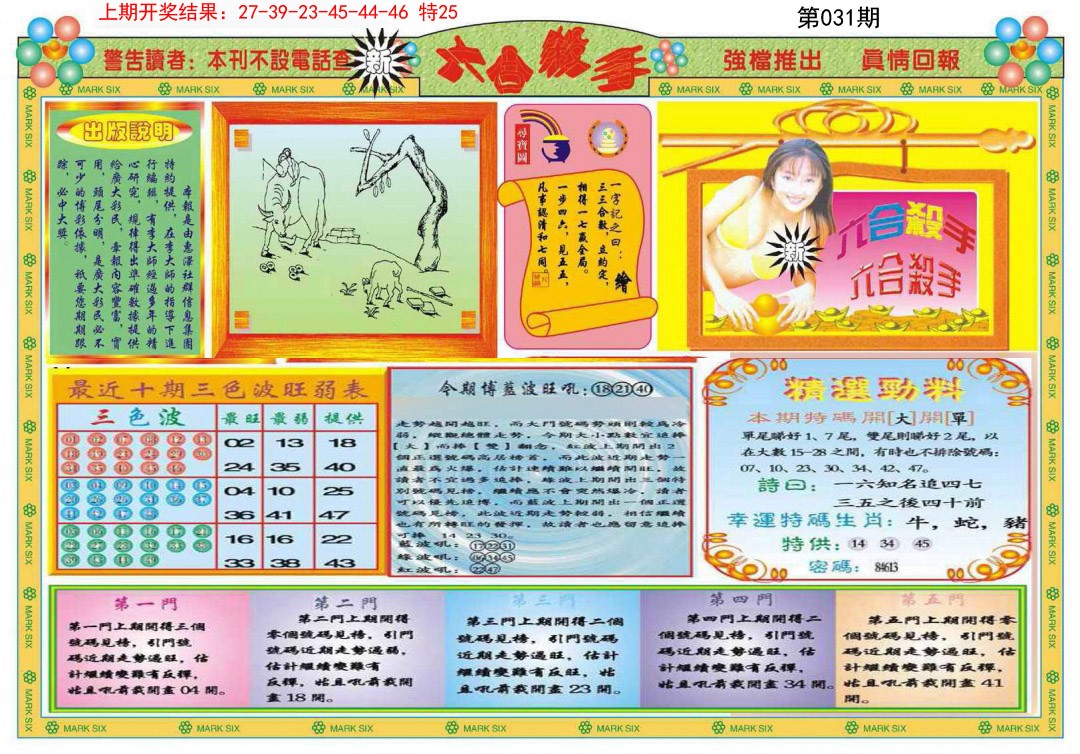 上期开奖结果：27-39-23-45-44-46 特25
第031期
警告讀者：本刊不設電話查
新
六合殺手
強檔推出 真情回報
MARK SIX
出版說明
本報是由惠澤社群信息集團
特約提供，在李大師的指導下進
行編輯，有李大師經過多年的精
心研究，規律得出準確數據提供
給廣大彩民，彙報內容豐富，實
用，頭尾分明，是廣大彩民必不
可少的博彩依據，祇要您期期跟
踪，必中大獎。
尋寶圖
一字記之曰：繪
三三合數，立約定，
相得一七贏全局。
一步四六，見五五，
凡事認清和七周。
新
六合殺手
六合殺手
最近十期三色波旺弱表
三色波 最旺 最弱 提供
02 13 18
24 35 40
04 10 25
36 41 47
16 16 22
33 38 43
今期博藍波旺吼：18 21 40
走勢越開越旺，而大門號碼勢頭則較爲冷
弱，縱觀總體走勢，今期大小點數宜追捧
【大】而捧【雙】翻念，紅波上期開出2
個正選號碼高居榜首，而此波近期走勢一
直最爲火爆，估計連續難以繼續開旺，故
讀者不宜過多追捧，綠波上期開出三個特
別號碼見榜，繼續應不會突然爆冷，讀者
可以優先追博，而藍波上期開出一個正選
號碼見榜，此波近期走勢較弱，相信繼續
也有所轉旺的發揮，故讀者也應留意追捧
可捧 14 23 30。
藍波吼：17 22 31
綠波吼：06 34 45
紅波吼：22 47
精選勁料
本期特碼開[大]開[單]
單尾睇好1、7尾，雙尾則睇好2尾，以
在大數15-28之間，有時也不排除號碼：
07、10、23、30、34、42、47。
詩曰：一六知名追四七
三五之後四十前
幸運特碼生肖：牛，蛇，豬
特供：14 34 45
密碼：84613
第一門
第一門上期開得三個
號碼見榜，引門號
碼近期走勢過旺，估
計繼續變難有反彈，
姑且吼前截開畫04開。
第二門
第二門上期開得
零個號碼見榜，引門
號碼近期走勢過弱，
估計繼續變難有
反彈，姑且吼前截開
畫18開。
第三門
第三門上期開得二個
號碼見榜，引門號碼
近期走勢過旺，估計
繼續變難有反旺，姑
且吼前截開畫23開。
第四門
第四門上期開得二
個號碼見榜，引門號
碼近期走勢過旺，估
計繼續變難有反彈，
姑且吼前截開畫34開。
第五門
第五門上期開得零
個號碼見榜，引門號
碼近期走勢過旺，估
計繼續變難有反彈，
姑且吼前截開畫41
開。